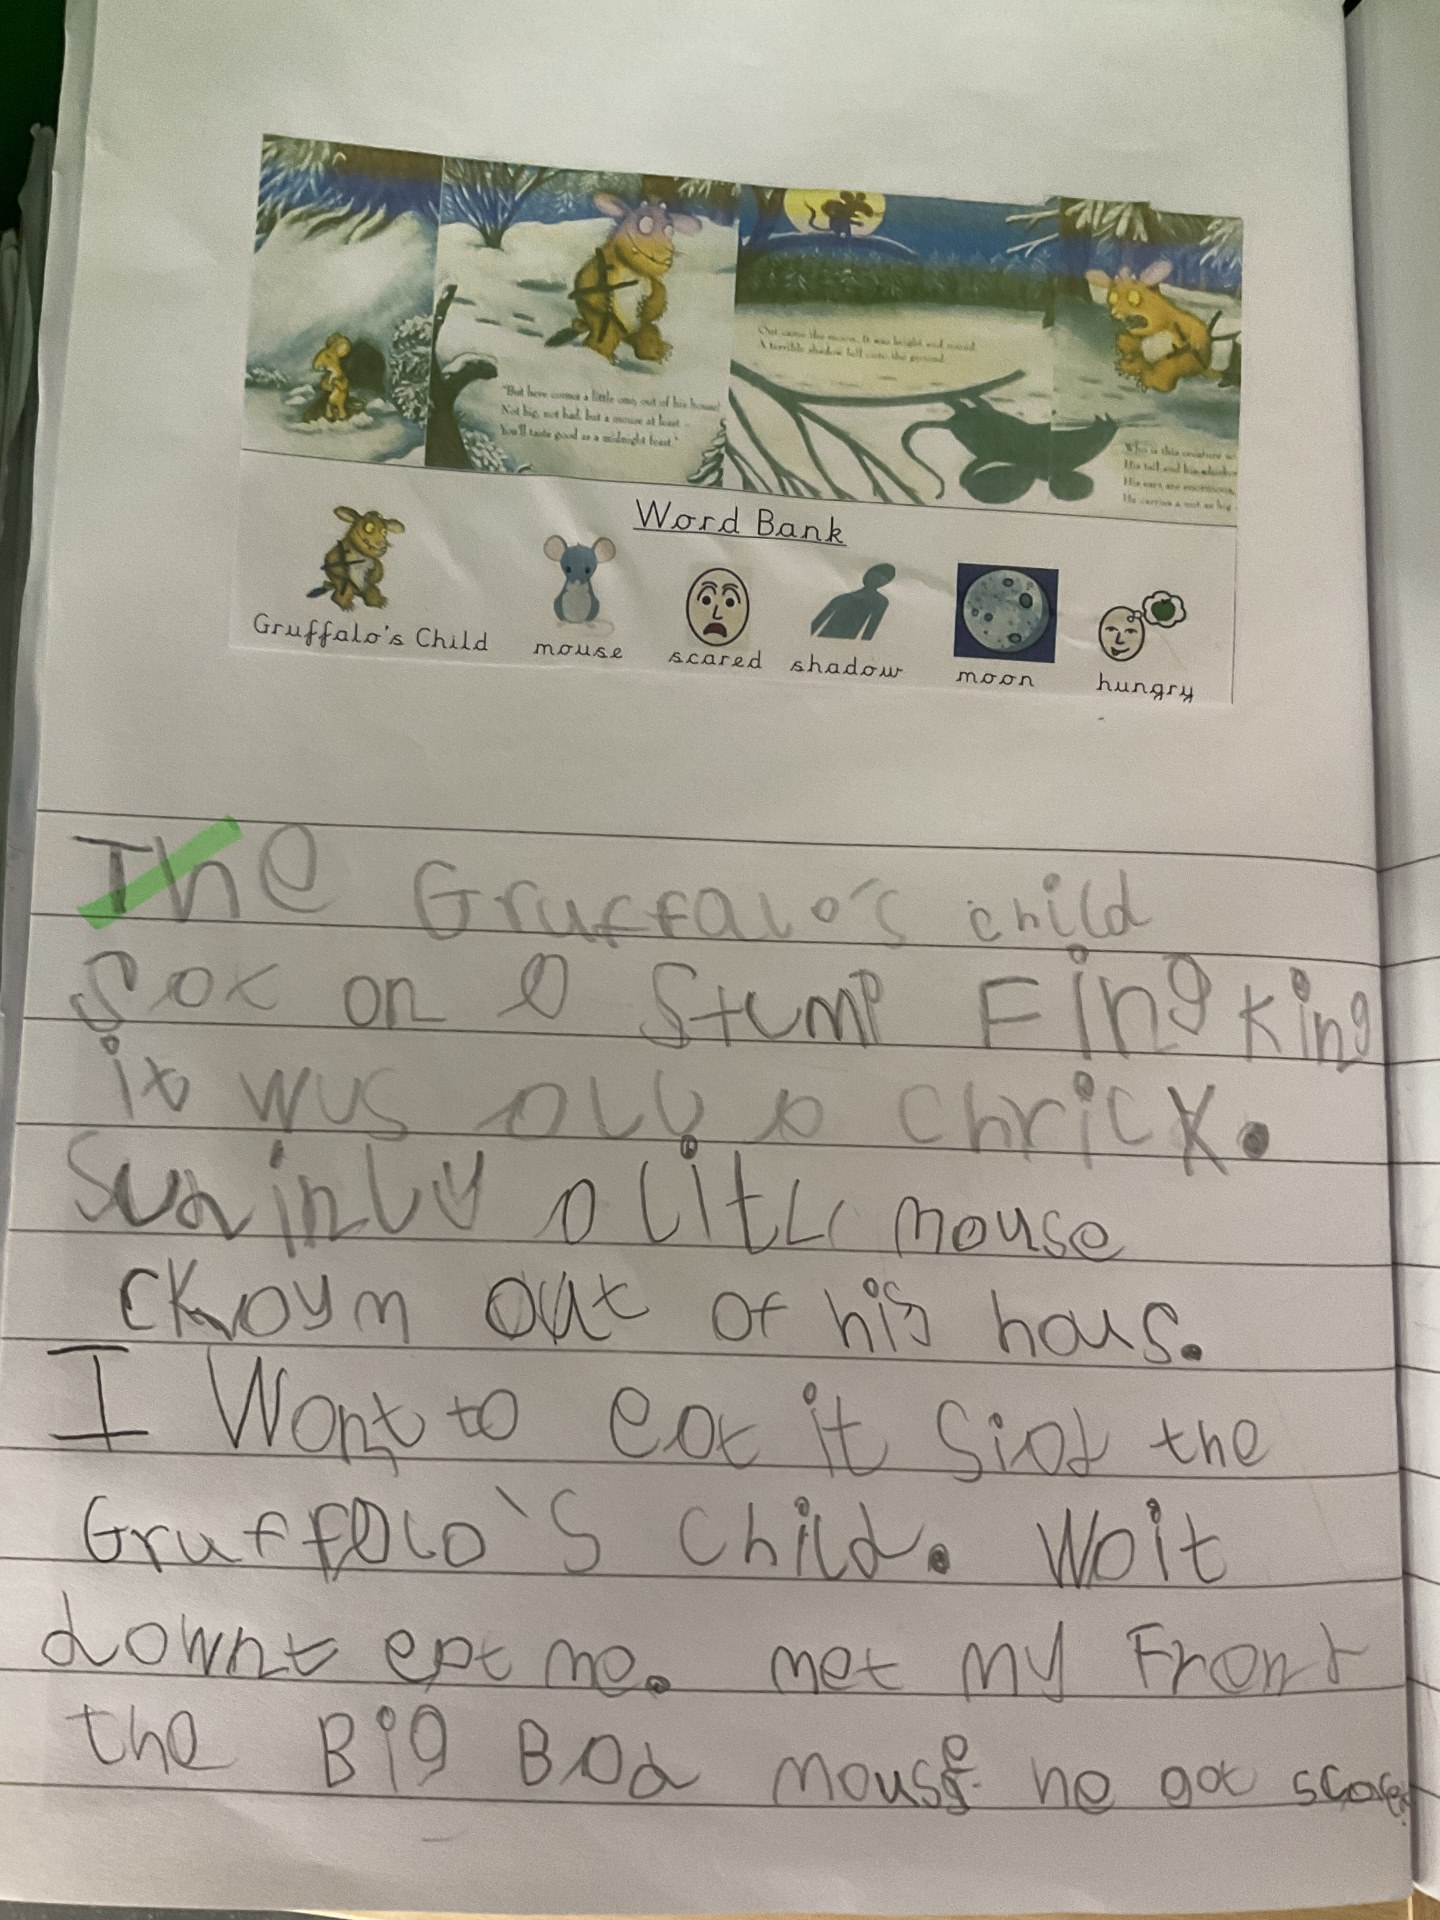 "But here comes a little one, out of his house!
Not big, not bad, but a mouse at least –
You'll taste good as a midnight feast."
Out came the moon. It was bright and round.
A terrible shadow fell onto the ground.
Who is this creature
His tail and his whisker
His ears are enormous,
He carries a nut as big
Word Bank
Gruffalo's Child
mouse
scared
shadow
moon
hungry
The Gruffalo's child
Sat on a Stump Fingking
it wus all a chrick.
Sudinly a litle mouse
ckoym out of his hous.
I Want to eat it Siad the
Gruffalo's child. Wait
downt eat me. met my Frond
the Big Bad mouse he got scared